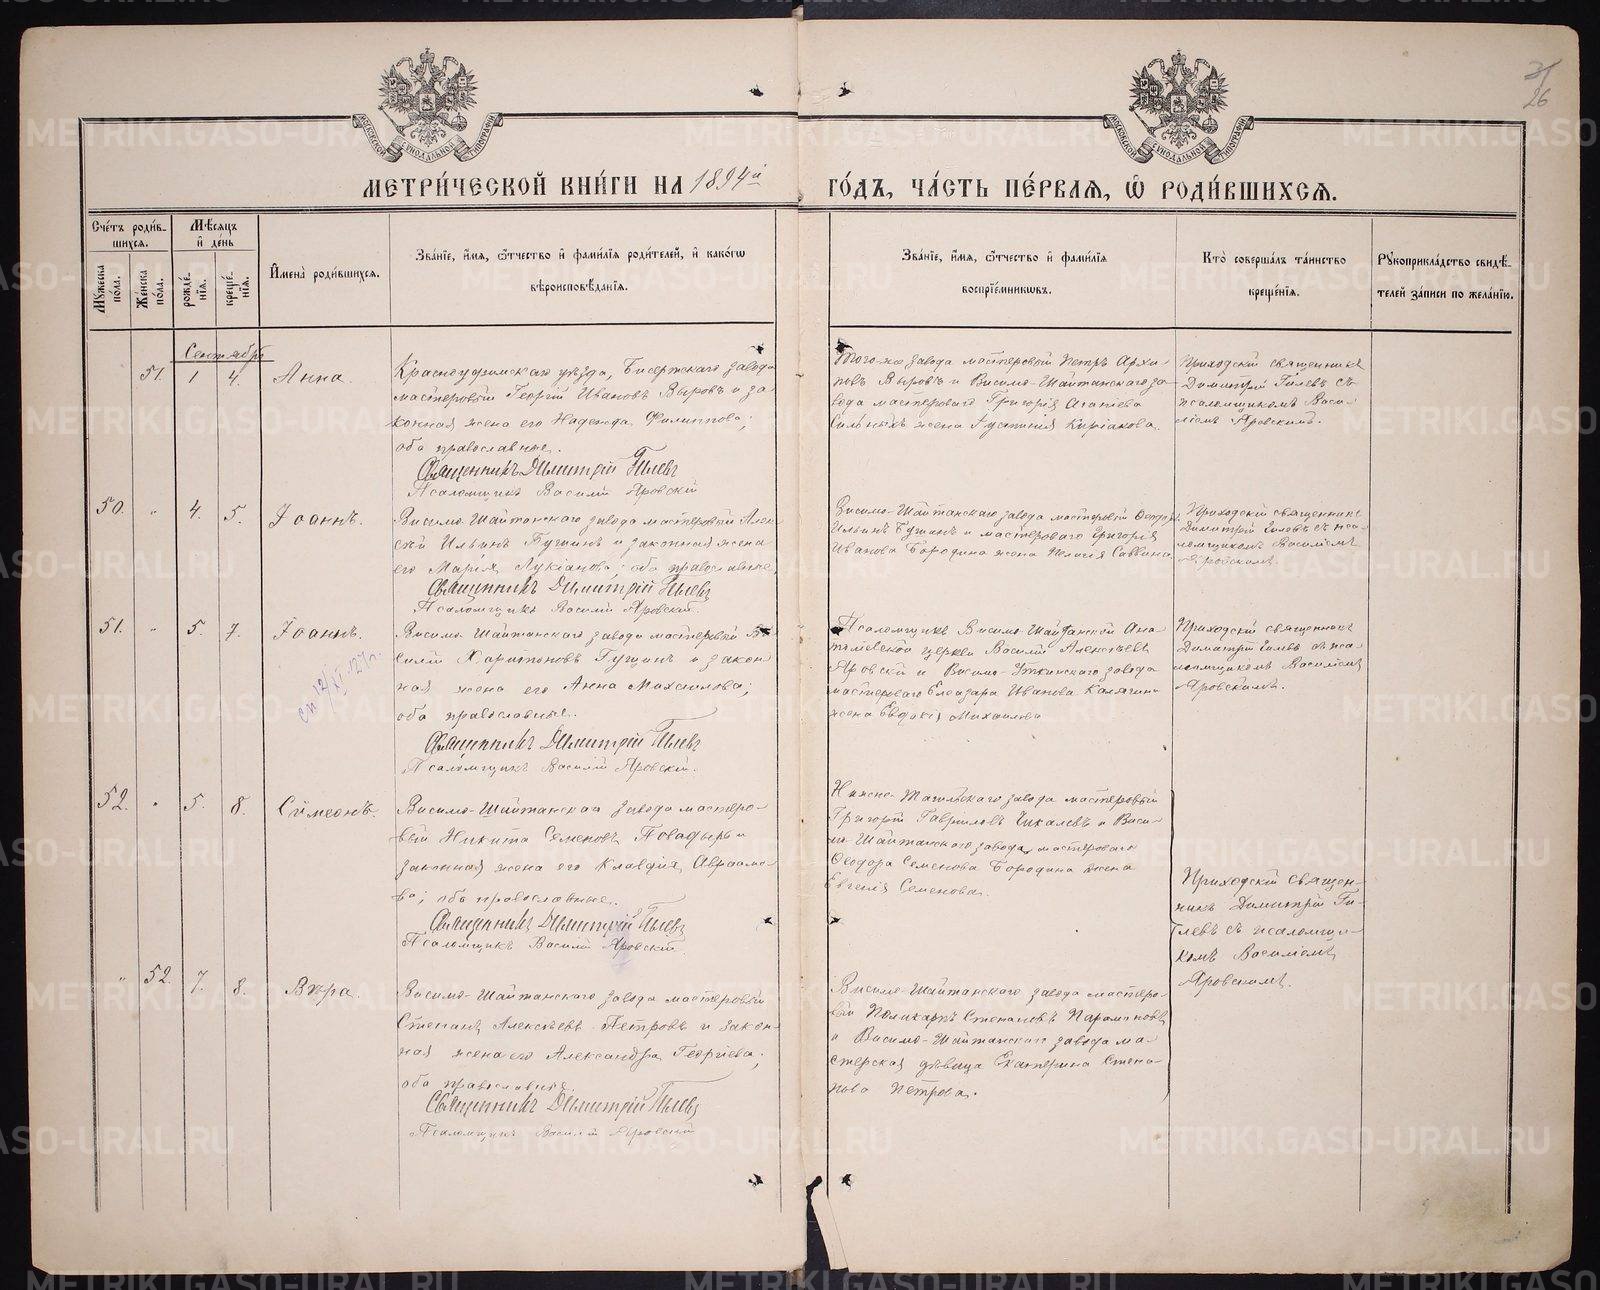 31
26
МОСКОВСКОЙ СѴНОДАЛЬНОЙ ТИПОГРАФІИ
МОСКОВСКОЙ СѴНОДАЛЬНОЙ ТИПОГРАФІИ
МЕТРИ́ЧЕСКОЙ КНИ́ГИ НА 1894й ГО́ДЪ, ЧА́СТЬ ПЕ́РВАѦ, Ѡ҆ РОДИ́ВШИХСѦ.
Сче́тъ роди́в-
шихсѧ.
Мѣ́сѧцъ
и҆ де́нь
Му́жеска
по́ла.
Же́нска
по́ла.
рожде́-
нїѧ.
креще́-
нїѧ.
И҆мена̀ роди́вшихсѧ.
Зва́нїе, и҆́мѧ, ѻ҆́тчество и҆ фами́лїѧ роди́телей, и҆ како́гѡ
вѣроисповѣ́данїѧ.
Зва́нїе, и҆́мѧ, ѻ҆́тчество и҆ фами́лїѧ
воспрїе́мникѡвъ.
Кто̀ соверша́лъ та́инство
креще́нїѧ.
Рꙋкоприкла́дство свидѣ́-
телей за́писи по жела́нїю.
Сентябрь
51. 1 4. Анна.
Красноуфимскаго уѣзда, Бисертскаго завода
мастеровый Георгій Ивановъ Выровъ и за
конная жена его Надежда Филиппова;
оба православные.
Священникъ Димитрій Гилевъ
Псаломщикъ Василій Яровскій
Того-же завода мастеровый Петръ Архи-
повъ Выровъ и Висимо-Шайтанскаго за-
вода мастероваго Григорія Агапіева
Сильныхъ жена Іустинія Киріакова.
Приходскій священникъ
Димитрій Гилевъ съ
псаломщикомъ Васи-
ліемъ Яровскимъ.
50. " 4. 5. Іоаннъ.
Висимо-Шайтанскаго завода мастеровый Алек-
сѣй Ильинъ Гущинъ и законная жена
его Марія Лукіанова; оба православные
Священникъ Димитрій Гилевъ
Псаломщикъ Василій Яровскій.
Висимо-Шайтанскаго завода мастеровый Петръ
Ильинъ Гущинъ и мастероваго Григорія
Иванова Бородина жена Пелагія Саввина
Приходскій священникъ
Димитрій Гилевъ съ пса-
ломщикомъ Василіемъ
Яровскимъ.
51. " 5. 7. Іоаннъ.
Висимо-Шайтанскаго завода мастеровый Ва
силій Харитоновъ Гущинъ и закон
ная жена его Анна Михаилова;
оба православные.
Священникъ Димитрій Гилевъ
Псаломщикъ Василій Яровскій.
Псаломщикъ Висимо-Шайтанской Ана-
толіевской церкви Василій Алексѣевъ
Яровскій и Висимо-Уткинскаго завода
мастероваго Елеазара Иванова Калягина
жена Евдокія Михаилова
Приходскій священникъ
Димитрій Гилевъ съ пса-
ломщикомъ Василіемъ
Яровскимъ.
52. " 5. 8. Симеонъ.
Висимо-Шайтанскаго завода мастеро-
вый Никита Семеновъ Повадырь и
законная жена его Клавдія Авраамо-
ва; оба православные.
Священникъ Димитрій Гилевъ
Псаломщикъ Василій Яровскій
Нижне-Тагильскаго завода мастеровый
Григорій Гавриловъ Чикалевъ и Виси-
мо-Шайтанскаго завода, мастероваго
Ѳеодора Семенова Бородина жена
Евгенія Семенова.
Приходскій священ-
никъ Димитрій Ги-
левъ съ псаломщи-
комъ Василіемъ
Яровскимъ.
" 52. 7. 8. Вѣра.
Висимо-Шайтанскаго завода мастеровый
Степанъ Алексѣевъ Петровъ и закон-
ная жена его Александра Георгіева;
оба православные.
Священникъ Димитрій Гилевъ
Псаломщикъ Василій Яровскій
Висимо-Шайтанскаго завода мастеро-
вый Поликарпъ Степановъ Парамоновъ
и Висимо-Шайтанскаго завода ма-
стерская дѣвица Екатерина Степа-
нова Петрова.
METRIKI.GASO-URAL.RU